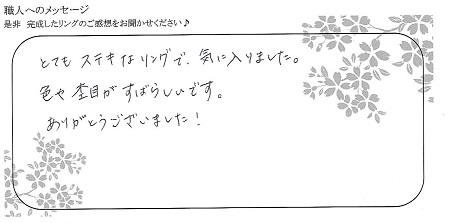 職人へのメッセージ
是非 完成したリングのご感想をお聞かせください♪
とても ステキなリングで、気に入りました。
色や 杢目が すばらしいです。
ありがとうございました！